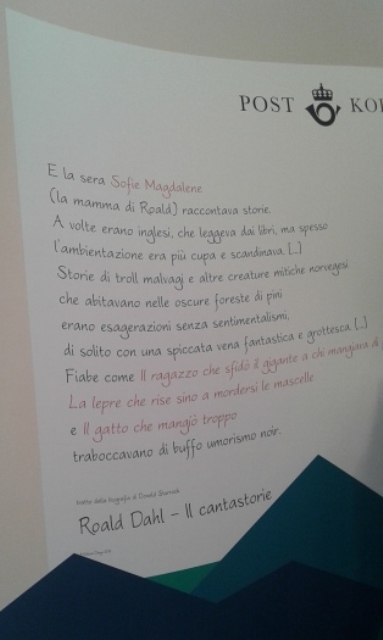 POST
E la sera Sofie Magdalene
(la mamma di Roald) raccontava storie.
A volte erano inglesi, che leggeva dai libri, ma spesso
l'ambientazione era più cupa e scandinava. [...]
Storie di troll malvagi e altre creature mitiche norvegesi
che abitavano nelle oscure foreste di pini
erano esagerazioni senza sentimentalismi,
di solito con una spiccata vena fantastica e grottesca. [...]
Fiabe come Il ragazzo che sfidò il gigante a chi mangiava di
La lepre che rise sino a mordersi le mascelle
e Il gatto che mangiò troppo
traboccavano di buffo umorismo noir.
tratto dalla biografia di Donald Sturrock
Roald Dahl – Il cantastorie